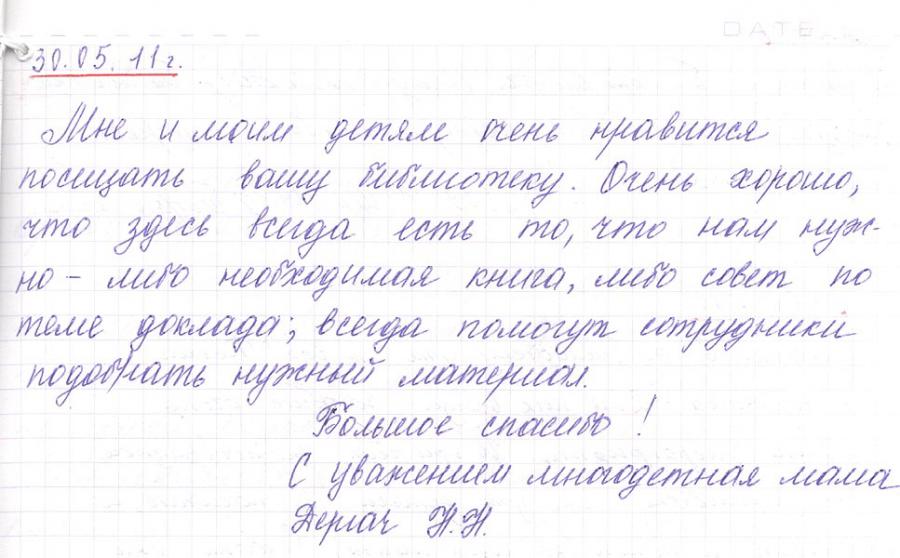 DATE
30.05.11г.
Мне и моим детям очень нравится
посещать вашу библиотеку. Очень хорошо,
что здесь всегда есть то, что нам нуж-
но - либо необходимая книга, либо совет по
теме доклада; всегда помогут сотрудники
подобрать нужный материал.
Большое спасибо!
С уважением многодетная мама
Н.Н.